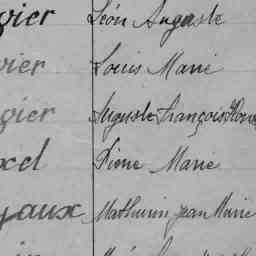 vier Léon Auguste
vier Louis Marie
gier Auguste François
xel Pierre Marie
yaux Mathurin Jean Marie